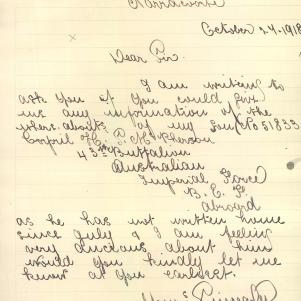 Narracoorte
October 24-1918
Dear Sir
I am writing to
ask you if you could give
me any information of the
where abouts of my Son
Corpil H. McPherson
43rd Battalion
Australian
Imperial Force
B. E. F.
abroad
as he has not written home
since July & I am feeling
very anxious about him
would you kindly let me
know at you earliest.